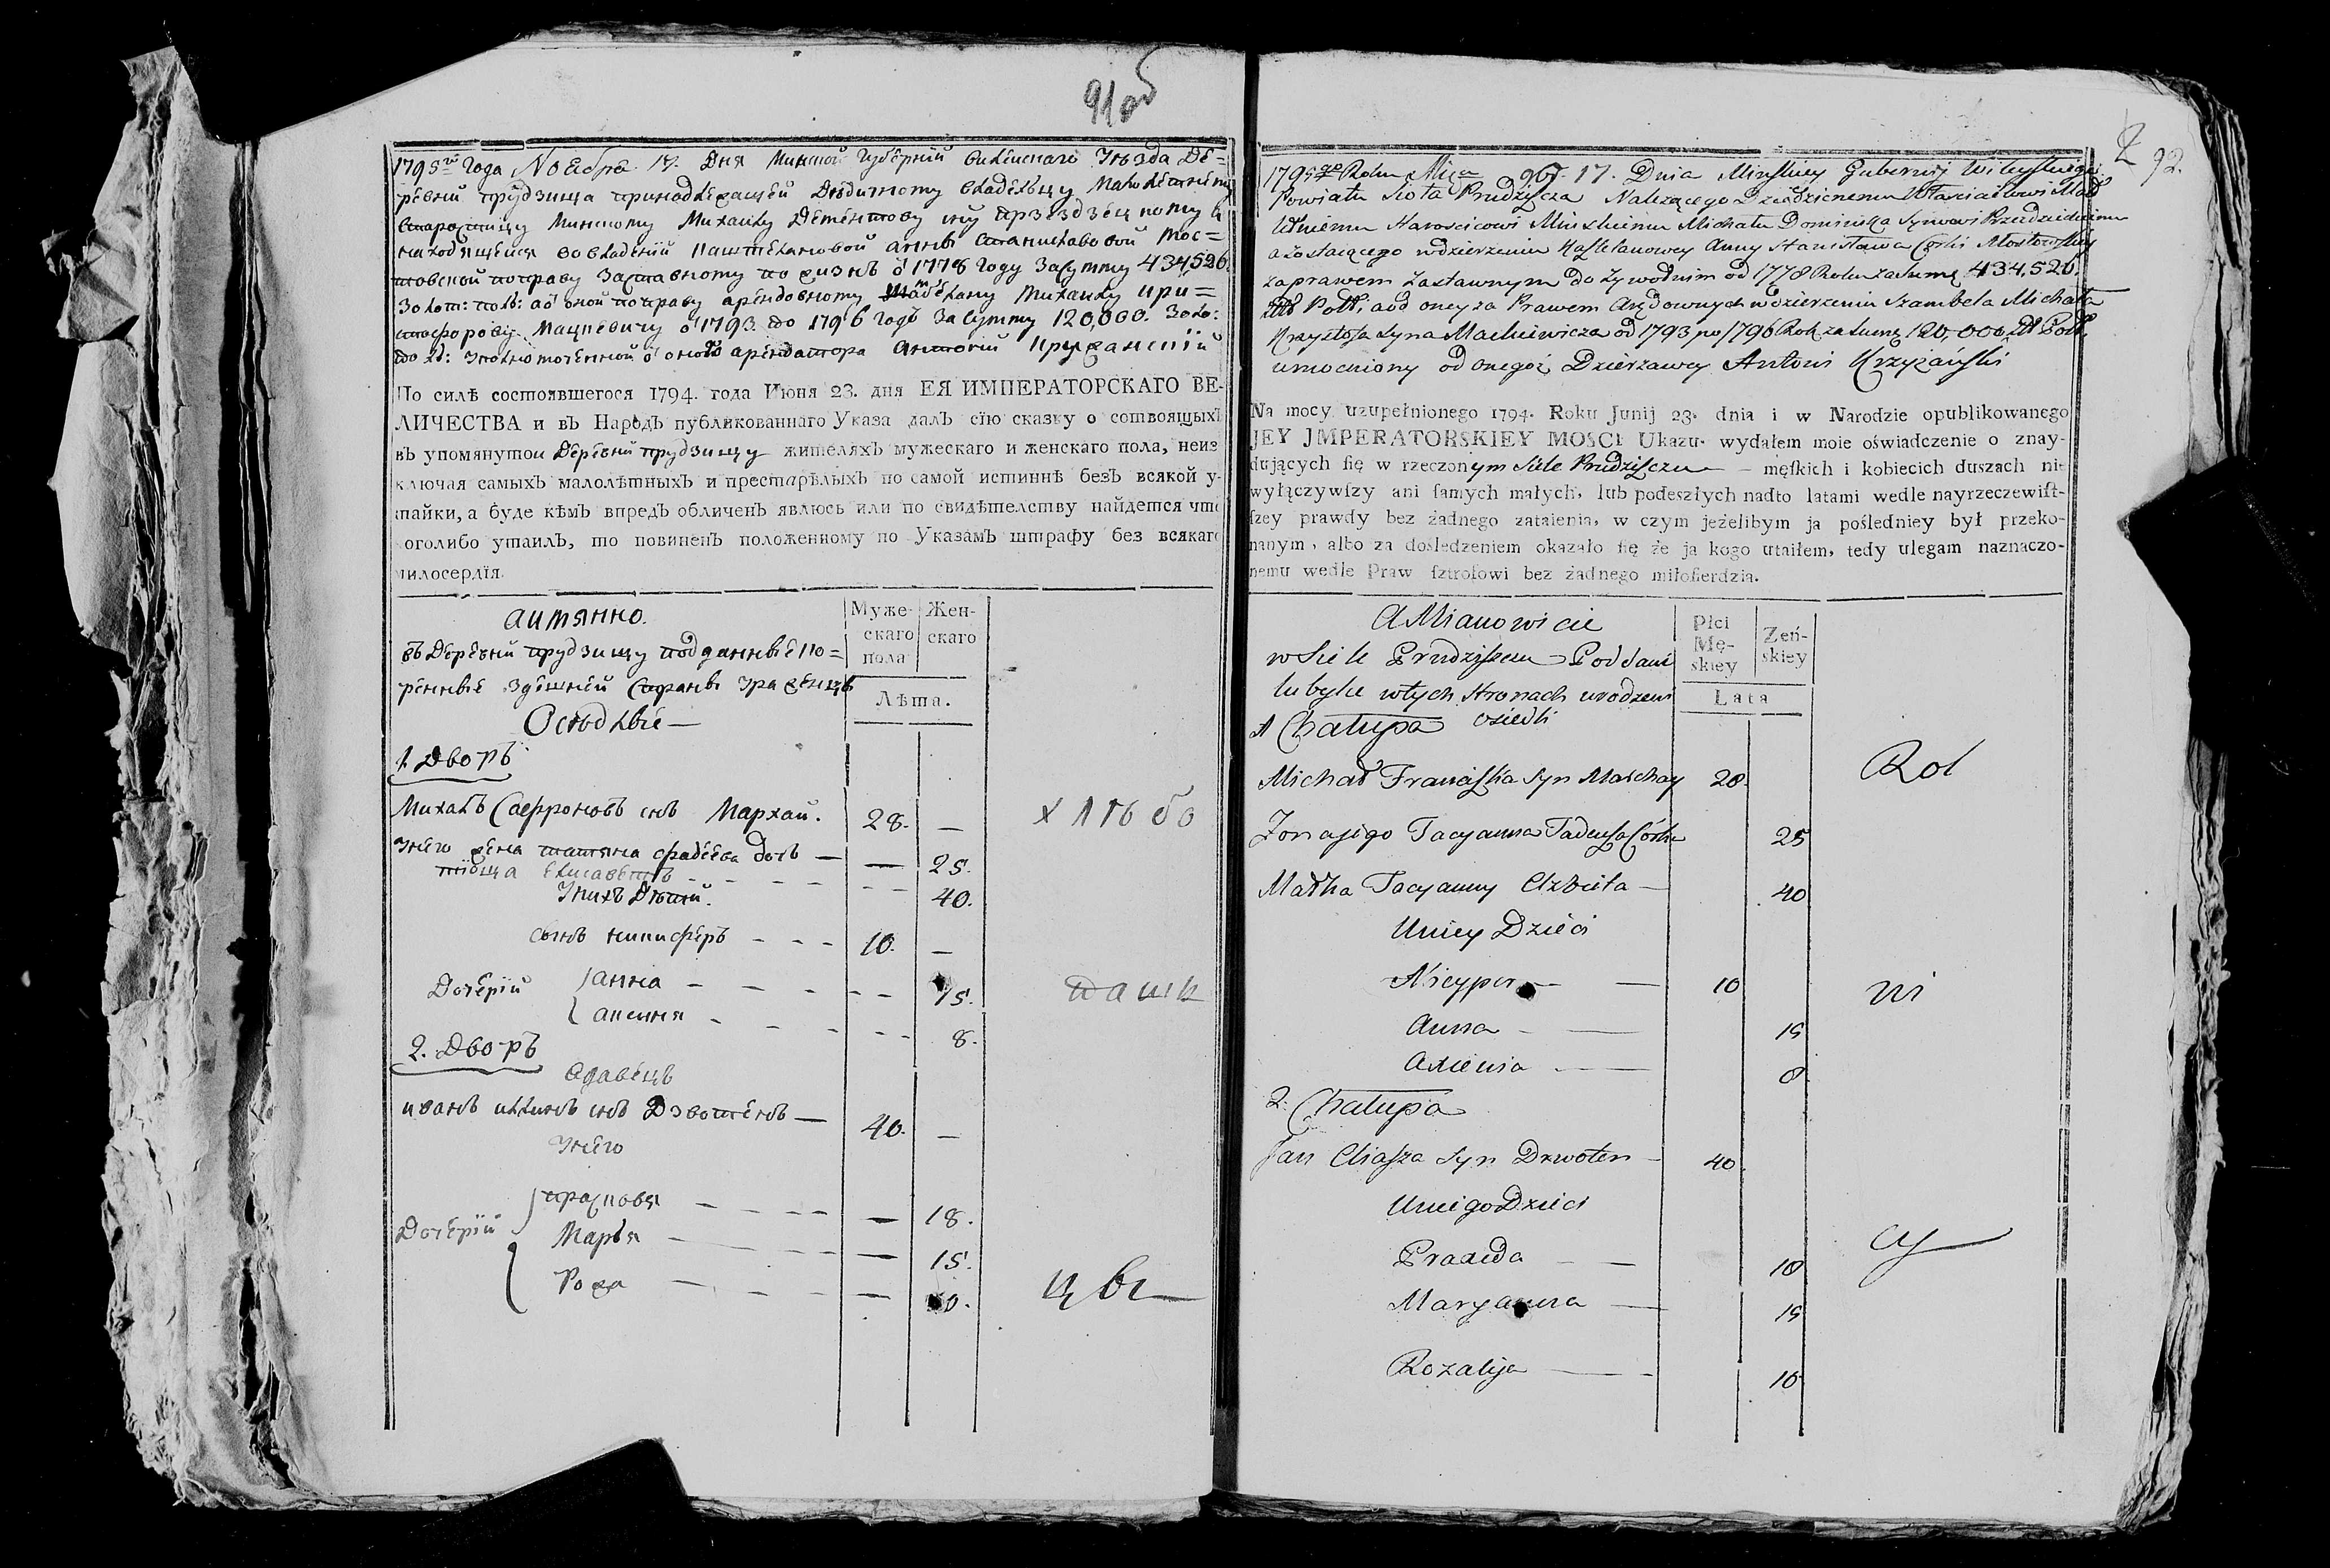 91об
1795го Года Ноября 17. Дня Минской Губерніи Вилейскаго Уѣзда Де=
ревни Прудзища принадлежащей Дѣдичному владѣльцу Малолетнему
Старостицу Минскому Михаилу Дементову сну Прзездзецкому а
находящейся во владеніи Каштелановой анны станиславовой Мос=
товской по праву Заставному по жизнь о 1778 Году За сумму 434,526.
Золот: поль: аот оной по праву арендовному Михаилу Кри=
стофорову Мацкевичу о 1793 до 1796 годъ За сумму 120,000. Золо:
арендатора Антоній Кружанскій
По силѣ состоявшегося 1794. года Июня 23. дня ЕЯ ИМПЕРАТОРСКАГО ВЕ-
ЛИЧЕСТВА и въ Народъ публикованнаго Указа далъ сїю сказку о сотвоящыхъ
въ упомянутои Деревни прудзищу жителяхъ мужескаго и женскаго пола, неиз
ключая самыхъ малолѣтныхъ и престарѣлыхъ по самой истиннѣ безъ всякой у-
тайки, а буде кѣмъ впредъ обличенъ явлюсь или по свидѣтелству найдется что
коголибо утаилъ, то повиненъ положенному по Указамъ штрафу без всякаго
милосердїя.
аимянно.
Муже-
скаго
пола
Жен-
скаго
въ Деревни прудзищу подданные ко=
ренные здешней Страны уроженцы
Оседлые —
Лѣта.
1. Дворъ
Михалъ Сафроновъ снъ Мархай. 28. —
Унего жена татяна фадеева дочь — — 25.
тіоща елисаветъ - - - 40.
Унихъ Дѣти.
сынъ никиферъ - - - 10. —
Дочерій анна - - - 15.
аксиня - - - 8.
хлѣбо
пашк
2. Дворъ
вдавецъ
иванъ иллинъ снъ Дзвотенъ — 40. —
Унего
Дочерій прасковя - - - — 18.
Марья — - - — 15.
Рожа — - - — 10.
цы
92.
1795go Roku Mca 9br. 17. Dnia Minskiey Gubernij Wileyskiego
Powiatu Sioła Prudziszcza Należącego Dziedzicznemu Włascicielowi Mało
letniemu Staroscicowi Minskiemu Michału Dominika Synowi Przezdzieckiemu
a zostaiącego w dzierzeniu Kasztelanowey Anny Stanisława Corki Mostowskiey
za prawem Zastawnym do Zywotnim od 1778 Roku za Sumę 434,526.
Złł Pols, a od oney za Prawem Arędownych w dzierzeniu Szambela Michała
Krzysztofa Syna Mackiewicza od 1793 po 1796 Rok za Sumę 120,000 Zł Pols,
umocniony od onegoż Dzierzawcy Antoni Krzyżański
Na mocy uzupełnionego 1794. Roku Junij 23. dnia i w Narodzie opublikowanego
JEY JMPERATORSKIEY MOSCI Ukazu. wydałem moie oświadczenie o znay-
dujących ſię w rzeczonym Siele Prudziszczu — męſkich i kobiecich duszach nie
wyłączywſzy ani ſamych małych, lub podeszłych nadto latami wedle nayrzeczewiſt-
ſzey prawdy bez żadnego zataienia, w czym jeżelibym ja poſledniey był przeko-
nanym, albo za doſledzeniem okazało ſię że ja kogo utaiłem, tedy ulegam naznaczo-
nemu wedle Praw ſztrofowi bez żadnego miłoſierdzia.
A Mianowicie
Płci
Mę-
skiey
Żeń-
skiey
w Siele Prudziszczu Poddani
lubylie w tych Stronach urodzeni
osiedli
Lata
1 Chałupa
Michał Franciszka Syn Marchay 28.
Zona jego Tacyanna Tadeusza Córka 25
Matka Tacyanny Elzbieta — 40
Uniey Dzieci
Nicypor — — 10
Anna - — 15
Axienia - — 8
Rol
ni
2. Chałupa
Jan Eliasza Syn Dzwoten — 40.
Uniego Dzieci
Praxeda - — 18
Maryanna — 15
Rozalija — - 10
cy